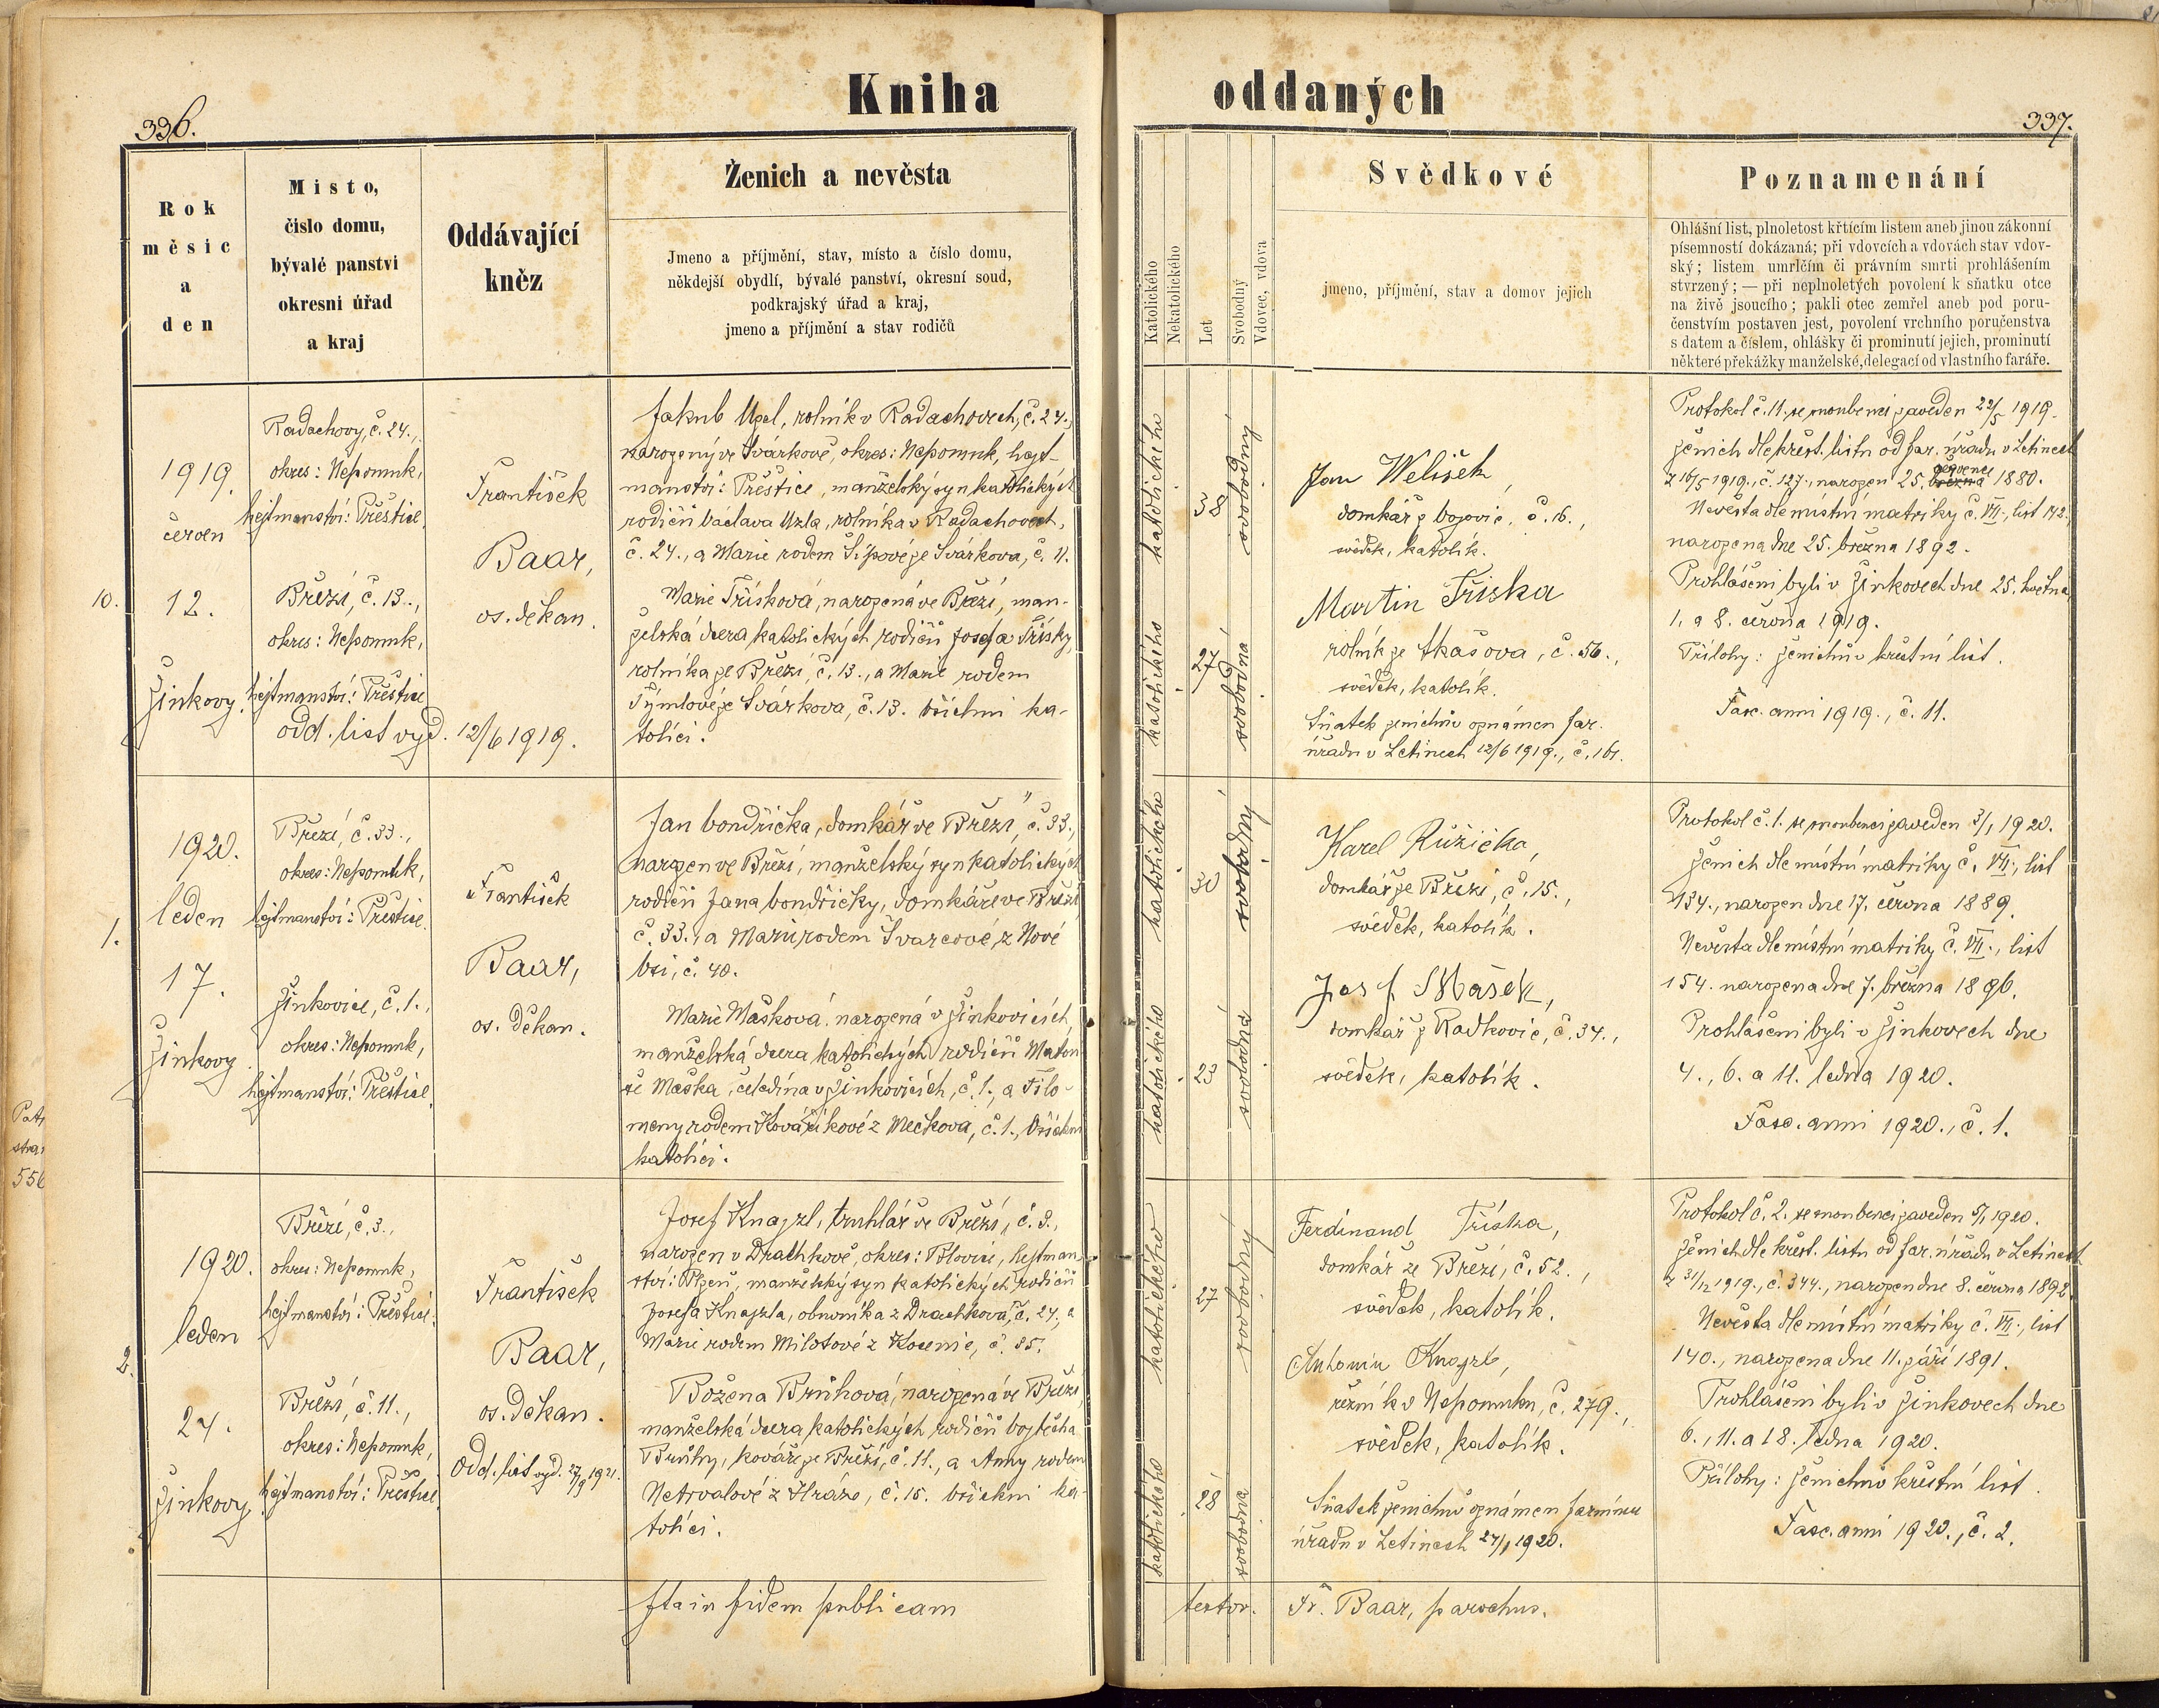 Kniha
oddaných
336.
337.
Rok
měsíc
a
den
Místo,
číslo domu,
bývalé panství
okresní úřad
a kraj
Oddávající
kněz
Ženich a nevěsta
Jmeno a příjmění, stav, místo a číslo domu,
někdejší obydlí, bývalé panství, okresní soud,
podkrajský úřad a kraj,
jmeno a příjmění a stav rodičů
Katolického
Nekatolického
Let
Svobodný
Vdovec, vdova
Svědkové
jmeno, příjmění, stav a domov jejich
Poznamenání
Ohlášní list, plnoletost křtícím listem aneb jinou zákonní
písemností dokázaná; při vdovcích a vdovách stav vdov-
ský; listem umrlčím či právním smrti prohlášením
stvrzený; — při neplnoletých povolení k sňatku otce
na živě jsoucího; pakli otec zemřel aneb pod poru-
čenstvím postaven jest, povolení vrchního poručenstva
s datem a číslem, ohlášky či prominutí jejich, prominutí
některé překážky manželské, delegací od vlastního faráře.
10.
1919.
červen
12.
Žinkovy.
Radachovy, č. 24.,
okres: Nepomuk,
hejtmanství: Přeštice.
Březí, č. 13.,
okres: Nepomuk,
hejtmanství: Přeštice
odd. list vyd. 12/6 1919.
František
Baar,
os. děkan.
Jakub Uzel, rolník v Radachovech, č. 24.,
narozený ve Svárkově, okres: Nepomuk, hejt-
manství: Přeštice, manželský syn katolických
rodičů Václava Uzla, rolníka v Radachovech,
č. 24., a Marie rodem Šípové ze Svárkova, č. 11.
Marie Třísková, narozená ve Březí, man-
želská dcera katolických rodičů Josefa Třísky,
rolníka ze Březí, č. 13., a Marie rodem
Týmlové ze Svárkova, č. 13. Všichni ka-
tolíci.
katolického
38
svobodný
katolického
27
svobodná
Jan Welišek,
domkář z Vojovic, č. 16.,
svědek, katolík.
Martin Tříska
rolník ze Skašova, č. 56.,
svědek, katolík.
Sňatek ženichův oznámen far.
úřadu v Letinech 12/6 1919., č. 161.
Protokol č. 11. se snoubenci zaveden 22/5 1919.
Ženich dle křest. listu od far. úřadu v Letinech
července
z 16/5 1919., č. 127., narozen 25. března 1880.
Nevěsta dle místní matriky č. VII., list 142.
narozena dne 25. března 1892.
Prohlášeni byli v Žinkovech dne 25. května,
1. a 8. června 1919.
Přílohy: ženichův křestní list.
Fasc. anni 1919., č. 11.
1.
1920.
leden
17.
Žinkovy
Březí, č. 33.,
okres: Nepomuk,
hejtmanství: Přeštice.
Žinkovice, č. 1.,
okres: Nepomuk,
hejtmanství: Přeštice.
František
Baar,
os. děkan.
Jan Vondřička, domkář ve Březí, č. 33.,
narozen ve Březí, manželský syn katolických
rodičů Jana Vondřičky, domkáře ve Březí
č. 33., a Marie rodem Švarcové, z Nové
Vsi, č. 40.
Marie Mašková, narozená v Žinkovicích,
manželská dcera katolických rodičů Matou
še Maška, čeledína v Žinkovicích, č. 1., a Filo-
meny rodem Kovaříkové z Mečkova, č. 1., Všichni
katolíci.
katolického
30
svobodný
katolického
23
svobodná
Karel Růžička,
domkář ze Březí, č. 15.,
svědek, katolík.
Josef Mašek,
domkář z Radkovic, č. 34.,
svědek, katolík.
Protokol č. 1. se snoubenci zaveden 3/1 1920.
Ženich dle místní matriky č. VII., list
134., narozen dne 17. června 1889.
Nevěsta dle místní matriky č. VII., list
154. narozena dne 7. března 1896.
Prohlášeni byli v Žinkovech dne
4., 6. a 11. ledna 1920.
Fasc. anni 1920., č. 1.
2.
1920.
leden
24.
Žinkovy.
Březí, č. 3.,
okres: Nepomuk,
hejtmanství: Přeštice.
Březí, č. 11.,
okres: Nepomuk,
hejtmanství: Přeštice
František
Baar,
os. děkan.
Odd. list vyd. 27/9 1921.
Josef Knajzl, truhlář ve Březí, č. 3.,
narozen v Drachkově, okres: Blovice, hejtman
ství: Plzeň, manželský syn katolických rodičů
Josefa Knajzla, obuvníka z Drachkova, č. 24., a
Marie rodem Milotové z Kosenic, č. 85.
Božena Brůhová, narozená ve Březí,
manželská dcera katolických rodičů Vojtěcha
Brůhy, kováře ze Březí, č. 11., a Anny rodem
Netrvalové z Hráze, č. 15. Všichni ka-
tolíci.
katolického
27
svobodný
katolického
28
svobodná
Ferdinand Tříska,
domkář ze Březí, č. 52.,
svědek, katolík.
Antonín Knajzl,
řezník v Nepomuku, č. 279.,
svědek, katolík.
Sňatek ženichův oznámen farnímu
úřadu v Letinech 24/1 1920.
Protokol č. 2. se snoubenci zaveden 5/1 1920.
Ženich dle křest. listu od far. úřadu v Letinech
z 31/12 1919., č. 344., narozen dne 8. června 1892.
Nevěsta dle místní matriky č. VII., list
140., narozena dne 11. září 1891.
Prohlášeni byli v Žinkovech dne
6., 11. a 18. ledna 1920.
Přílohy: ženichův křestní list.
Fasc. anni 1920., č. 2.
Ita in fidem publicam
testor. Fr. Baar, parochus.
556